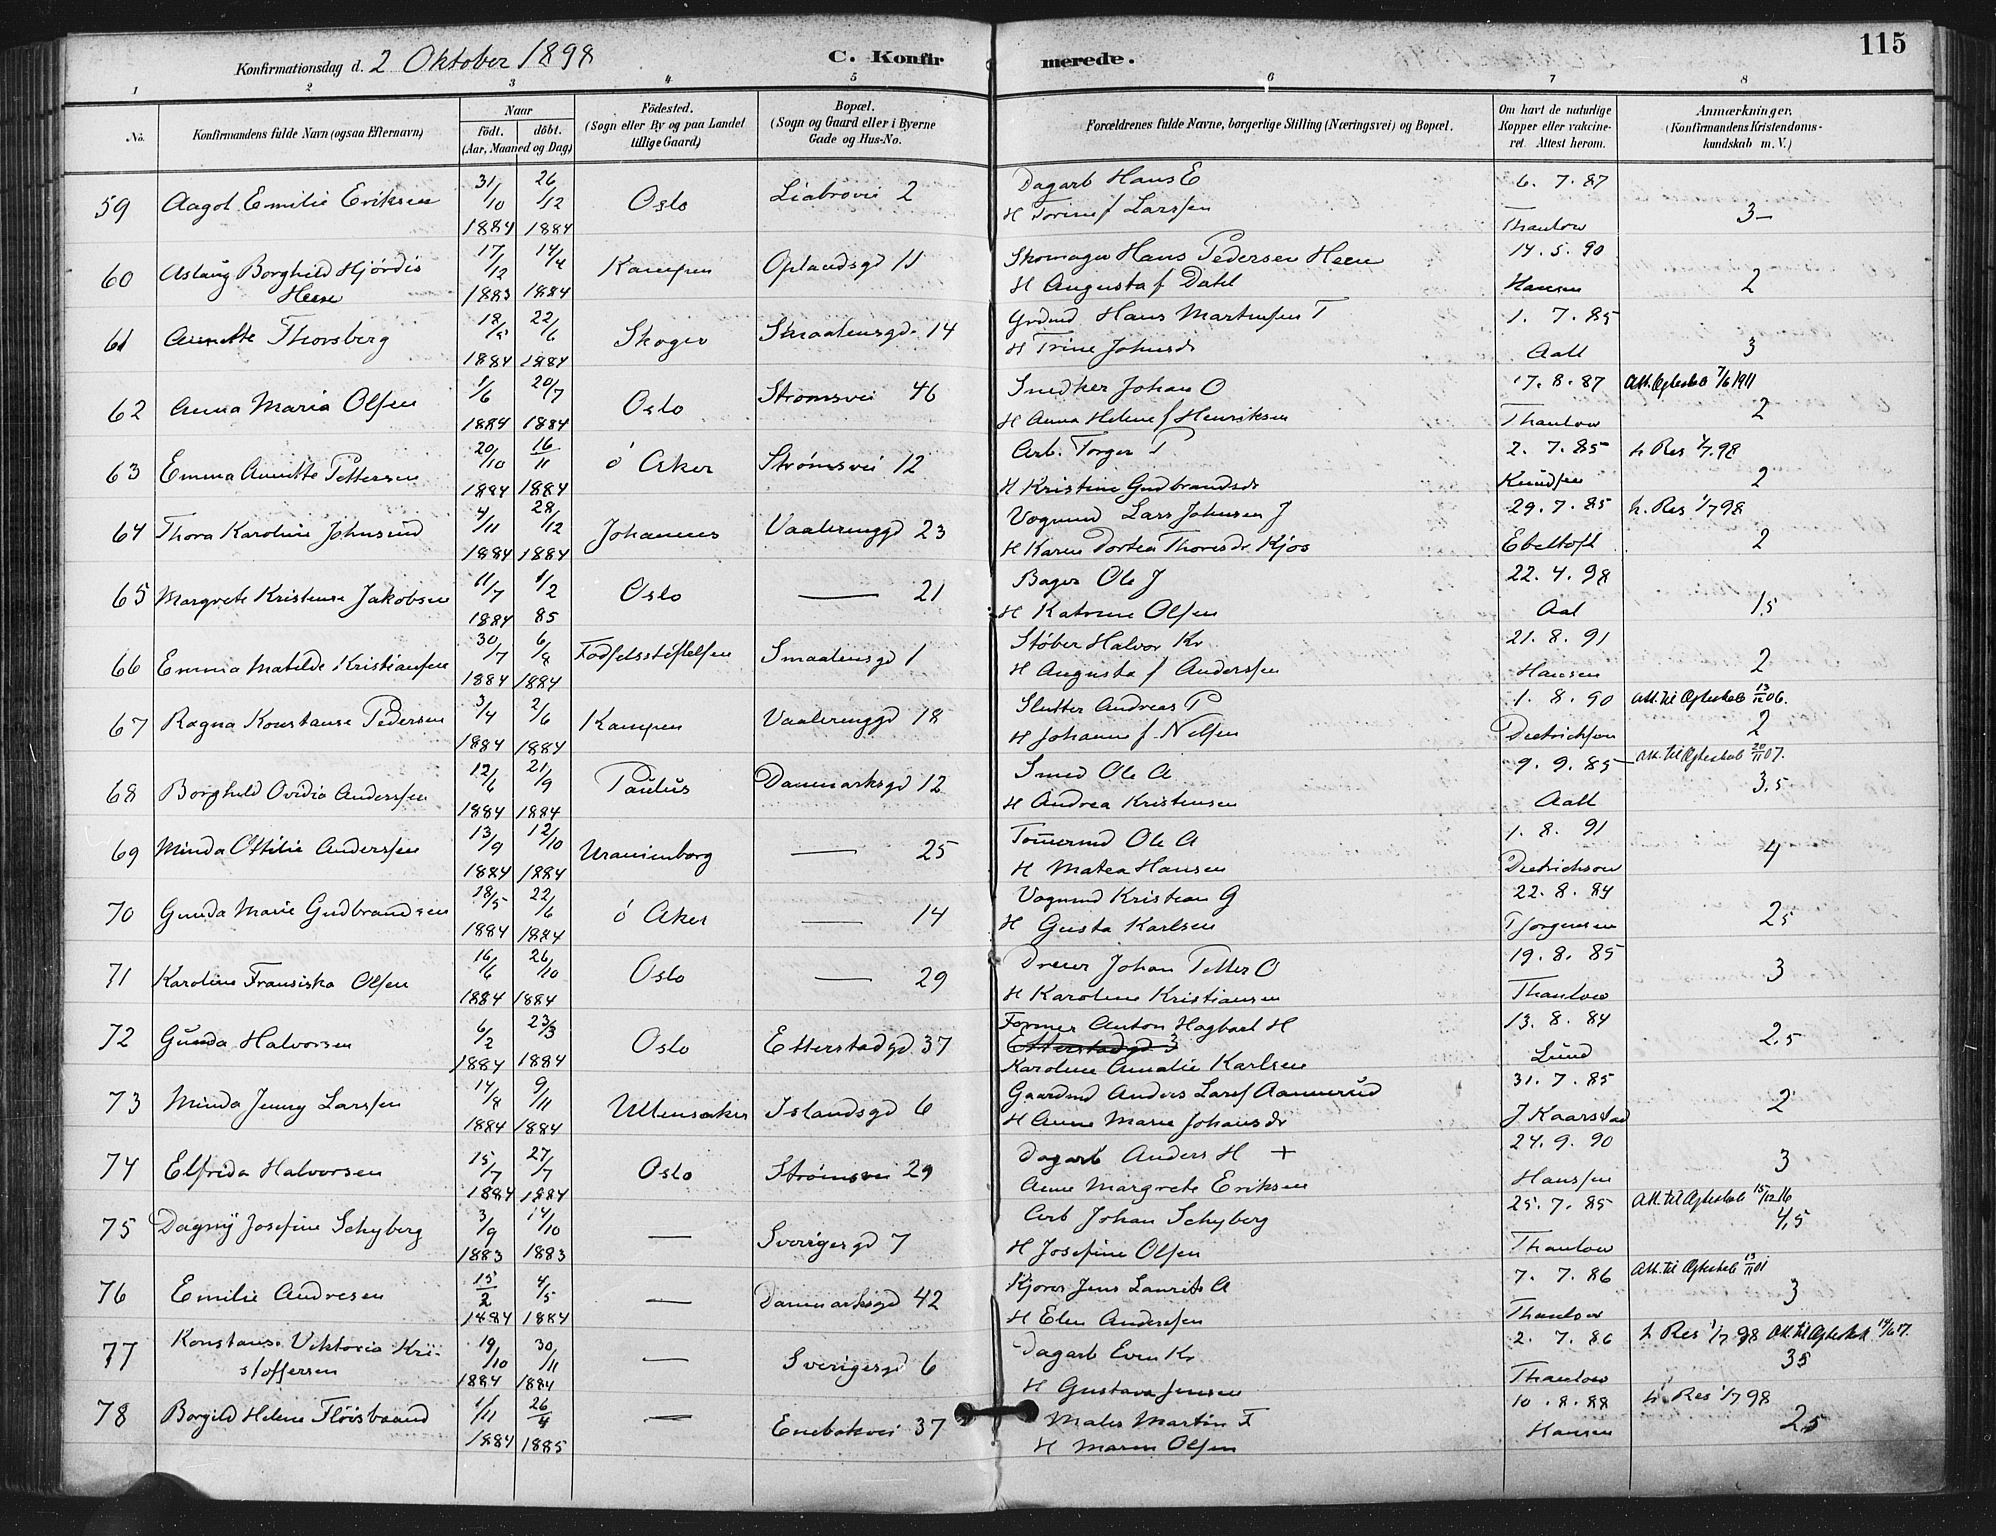 115
Konfirmationsdag d. 2 Oktober 1898
C. Konfirmerede.
1 2 3 4 5 6 7 8
No. Konfirmandens fulde Navn (ogsaa Efternavn) Naar født. døbt. (Aar, Maaned og Dag) Fødested. (Sogn eller By og paa Landet tillige Gaard) Bopæl. (Sogn og Gaard eller i Byerne Gade og Hus-No. Forældrenes fulde Navne, borgerlige Stilling (Næringsvei) og Bopæl. Om havt de naturlige Kopper eller vakcineret. Attest herom. Anmærkninger. (Konfirmandens Kristendomskundskab m. V.)
59 Aagot Emilie Eriksen 31/10 1884 26/12 1884 Oslo Liabrovei 2 Dagarb Hans E 6. 7. 87
H Torine f Larssen Thaulow 3-
60 Aslaug Borghild Hjördis 17/12 14/4 Kampen Oplandsgd 11 Skomager Hans Pedersen Heen 14. 5. 90
Heen 1883 1884 H Augusta f Dahl Hansen 2
61 Annette Thorsberg 18/5 1884 22/6 1884 Skoger Smaalensgd. 14 Grdmd Hans Martinsen T 1. 7. 85
H Trine Johnsdr Aall 3
62 Anna Maria Olsen 1/6 1884 20/7 1884 Oslo Strømsvei 46 Snedker Johan O 17. 8. 87 Att. Ægteskab 7/6 1911
H Anna Helene f Henriksen Thaulow 2
63 Emma Annette Pettersen 20/10 1884 16/11 1884 ö Aker Strømsvei 12 Arb. Torger P 2. 7. 85 h Res 1/7.98
H Kristine Gudbrandsdr Knudsen 2
64 Thora Karoline Johnsrud 4/11 1884 28/12 1884 Johannes Vaalerenggd 23 Vognmd Lars Johnsen J 29. 7. 85 h. Res 1/7 98
H Karen Dortea Thoresdr Kjos Ebeltoft 2
65 Margrete Kristense Jakobsen 11/7 1884 1/2 85 Oslo — 21 Bager Ole J 22. 4. 98
H Katrine Olsen Aal 1.5
66 Emma Matilde Kristiansen 30/7 1884 6/8 1884 Fødselsstiftelsen Smaalensgd 1 Støber Halvor Kr 21. 8. 91
H Augusta f Anderssen Hansen 2
67 Ragna Konstanse Pedersen 3/4 1884 2/6 1884 Kampen Vaalerenggd 18 Slutter Andreas P 1. 8. 90 Att. til Ægteskab 13/12 06.
H Johanne f. Nilsen Dietrichson 2
68 Borghild Ovidia Anderssen 12/6 1884 21/9 1884 Paulus Danmarksgd 12 Smed Ole A 9. 9. 85 Att. til Ægteskab 20/11 07.
H Andrea Kristensen Aall 3.5
69 Minda Ottilie Anderssen 13/9 1884 12/10 1884 Uranienborg — 25 Tømermd Ole A 1. 8. 91
H Matea Hansen Dietrichson 4
70 Gunda Marie Gudbrandsen 18/5 1884 22/6 1884 ö Aker — 14 Vognmd Kristian G 22. 8. 84
H Gusta Karlsen T Jorgensen 25
71 Karoline Fransiska Olsen 16/6 1884 26/10 1884 Oslo — 29 Dreier Johan Petter O 19. 8. 85
H Karoline Kristiansen Thaulow 3
72 Gunda Halvorsen 6/2 1884 23/3 1884 Oslo Etterstadgd 37 Former Anton Hagbart H 13. 8. 84
Etterstadgd 3
Karoline Amalie Karlsen Lund 2.5
73 Minda Jenny Larssen 14/8 1884 9/11 1884 Ullensaker Islandsgd 6 Gaardmd Anders Larss Aamerud 31. 7. 85
H Anne Marie Johansdr J Kaarstad 2
74 Elfrida Halvorsen 15/7 1884 27/7 1884 Oslo Strømsvei 29 Dagarb Anders H + 24. 9. 90
Anne Margrete Eriksen Hanssen 3
75 Dagny Josefine Schyberg 3/9 1883 14/10 1883 — Sverigesgd 7 Arb Johan Schyberg 25. 7. 85 Att. til Ægteskab 15/12 16
H Josefine Olsen Thaulow 4.5
76 Emilie Andresen 15/2 1884 4/5 1884 — Danmarksgd 42 Kjører Jens Laurits A 7. 7. 86 Att. til Ægteskab 13/11 01
H Elen Andersen Thaulow 3
77 Konstanse Viktoria Kri- 19/10 30/11 — Sverigesgd 6 Dagarb Even Kr 2. 7. 86 h Res 1/7 98 Att. til Ægteskab 14/6 17.
stoffersen 1884 1884 H Gustava Jensen Thaulow 35
78 Borgild Helene Fløisbaand 1/11 1884 26/4 1885 — Enebakvei 37 Maler Martin F 10. 8. 88 h Res 1/7 98
H Maren Olsen Hansen 25